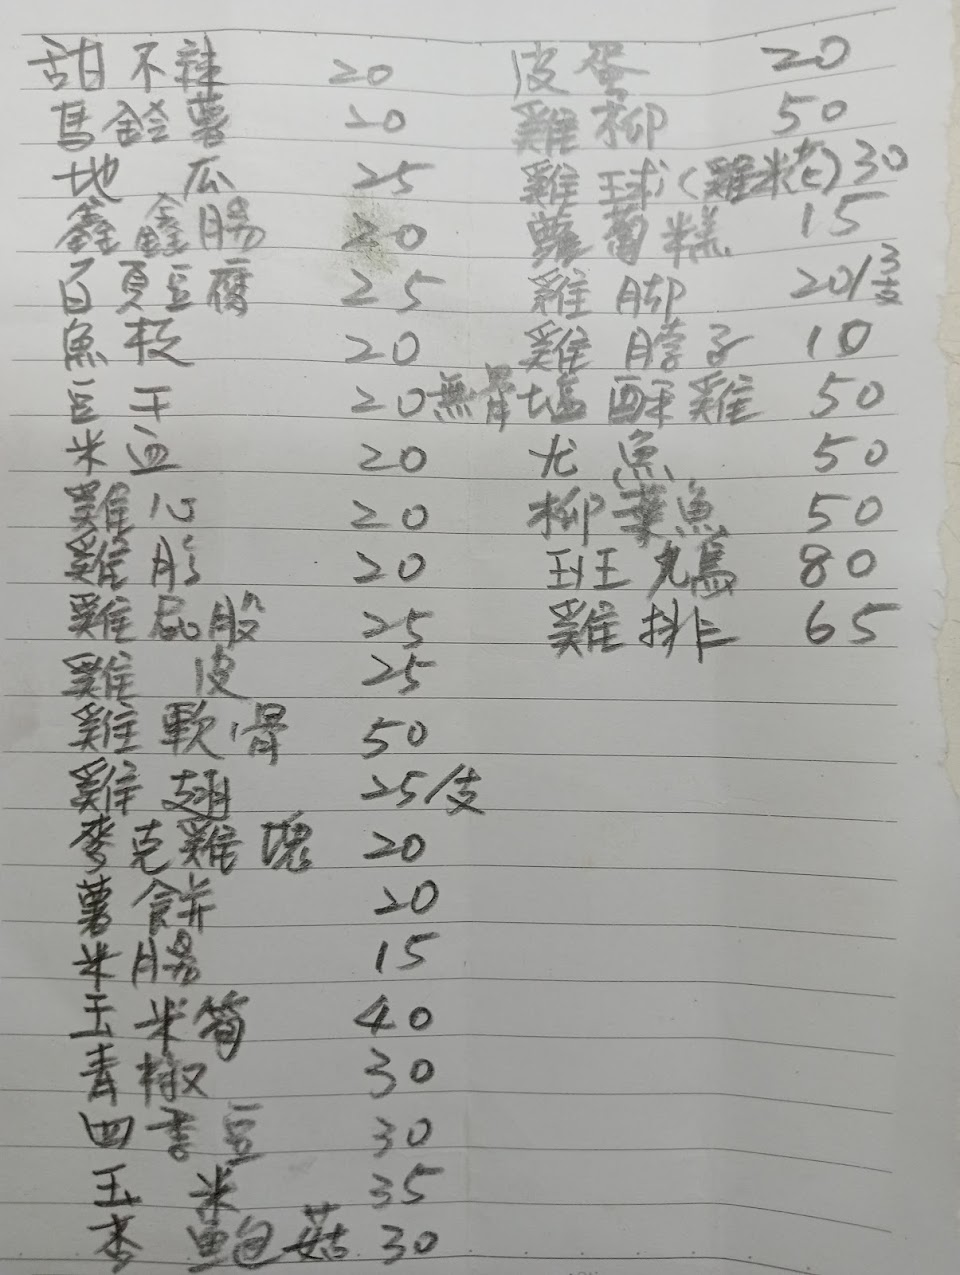 甜不辣 20
馬鈴薯 20
地瓜 25
鑫鑫腸 20
百頁豆腐 25
魚板 20
豆干 20
米血 20
雞心 20
雞胗 20
雞屁股 25
雞皮 25
雞軟骨 50
雞翅 25/支
麥克雞塊 20
薯餅 20
米腸 15
玉米筍 40
青椒 30
四季豆 30
玉米 35
杏鮑菇 30
皮蛋 20
雞柳 50
雞球(雞米花) 30
蘿蔔糕 15
雞腳 20/3支
雞脖子 10
無骨塩酥雞 50
尤魚 50
柳葉魚 50
班鳩 80
雞排 65